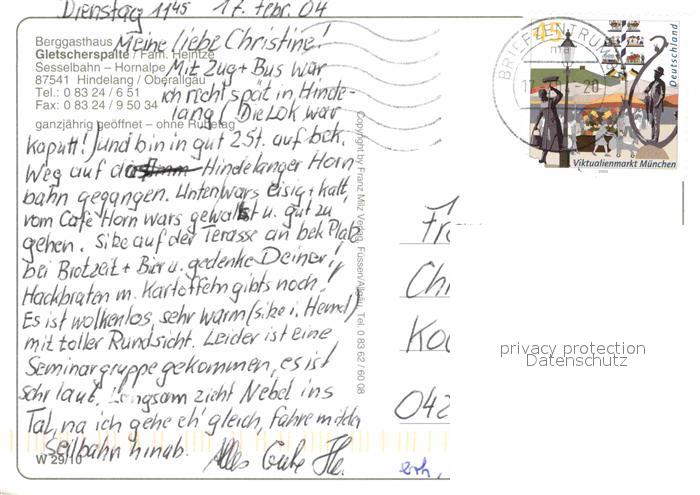 Dienstag 11⁴⁵ 17. Febr. 04
Meine liebe Christine!
Mit Zug + Bus war
ich recht spät in Hinde-
lang (Die Lok war
kaputt) und bin in gut 2 St. auf bek.
Weg auf das Hindelanger Horn
bahn gegangen. Unten wars eisig + kalt,
vom Café Horn wars gewalst u. gut zu
gehen. Sitze auf der Terasse an bek Platz
bei Brotzeit + Bier u. gedenke Deiner!
Hackbraten m. Kartoffeln gibts noch!
Es ist wolkenlos, sehr warm (sitze i. Hemd)
mit toller Rundsicht. Leider ist eine
Seminargruppe gekommen, es ist
sehr laut. Langsam zieht Nebel ins
Tal, na ich gehe eh' gleich, fahre mit der
Seilbahn hinab. Alles Gute
Berggasthaus
Gletscherspalte / Fam. Heintze
Sesselbahn – Hornalpe
87541 Hindelang / Oberallgäu
Tel.: 0 83 24 / 6 51
Fax: 0 83 24 / 9 50 34
ganzjährig geöffnet – ohne Ruhetag
W 29/10
Copyright by Franz Milz Verlag, Füssen/Allgäu, Tel. 0 83 62 / 60 08
BRIEFZENTRUM
45
Deutschland
Viktualienmarkt München
Fr
Ch
Ko
042
privacy protection
Datenschutz